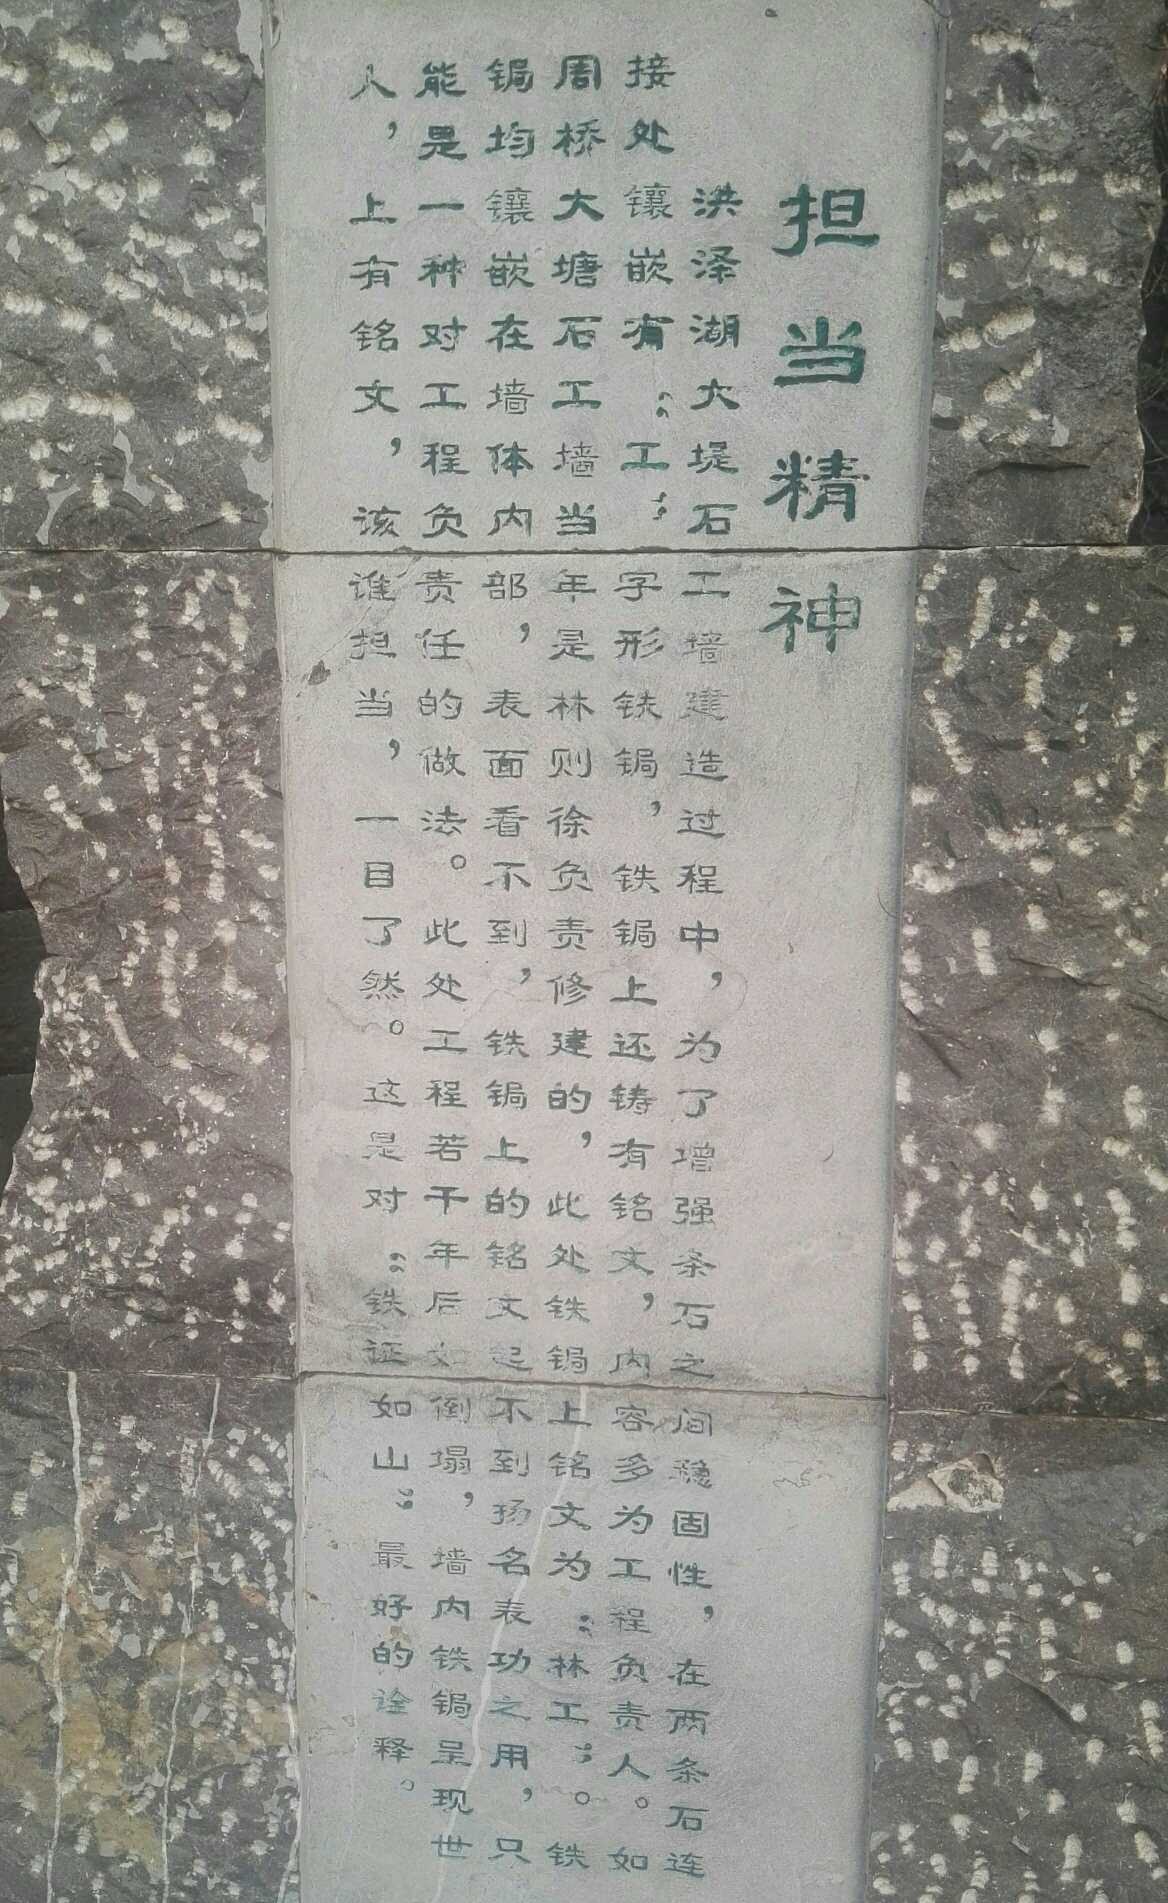 担当精神
洪泽湖大堤石工墙建造过程中，为了增强条石之间稳固性，在两条石连
接处镶嵌有“工”字形铁锔，铁锔上还铸有铭文，内容多为工程负责人。如
周桥大塘石工墙当年是林则徐负责修建的，此处铁锔上铭文为“林工”。铁
锔均镶嵌在墙体内部，表面看不到，铁锔上的铭文起不到扬名表功之用，只
能是一种对工程负责任的做法。此处工程若干年后如倒塌，墙内铁锔呈现世
人，上有铭文，该谁担当，一目了然。这是对“铁证如山”最好的诠释。